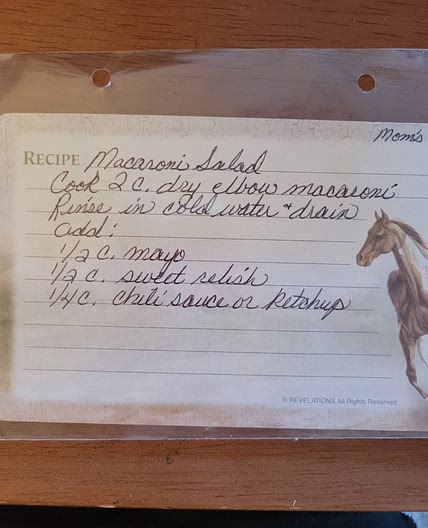 Mom's
RECIPE Macaroni Salad
Cook 2 c. dry elbow macaroni
Rinse in cold water & drain
add:
1/2 c. mayo
1/2 c. sweet relish
1/4 c. chili sauce or ketchup
© REVELATIONS All Rights Reserved